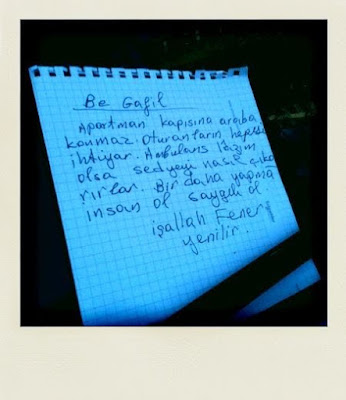 Be Gafil
Apartman kapısına araba
konmaz. Oturanların hepsi
ihtiyar. Ambulans lazım
olsa sedyeyi nasıl çıka
rırlar. Bir daha yapma
insan ol saygılı ol
işallah Fener
yenilir.